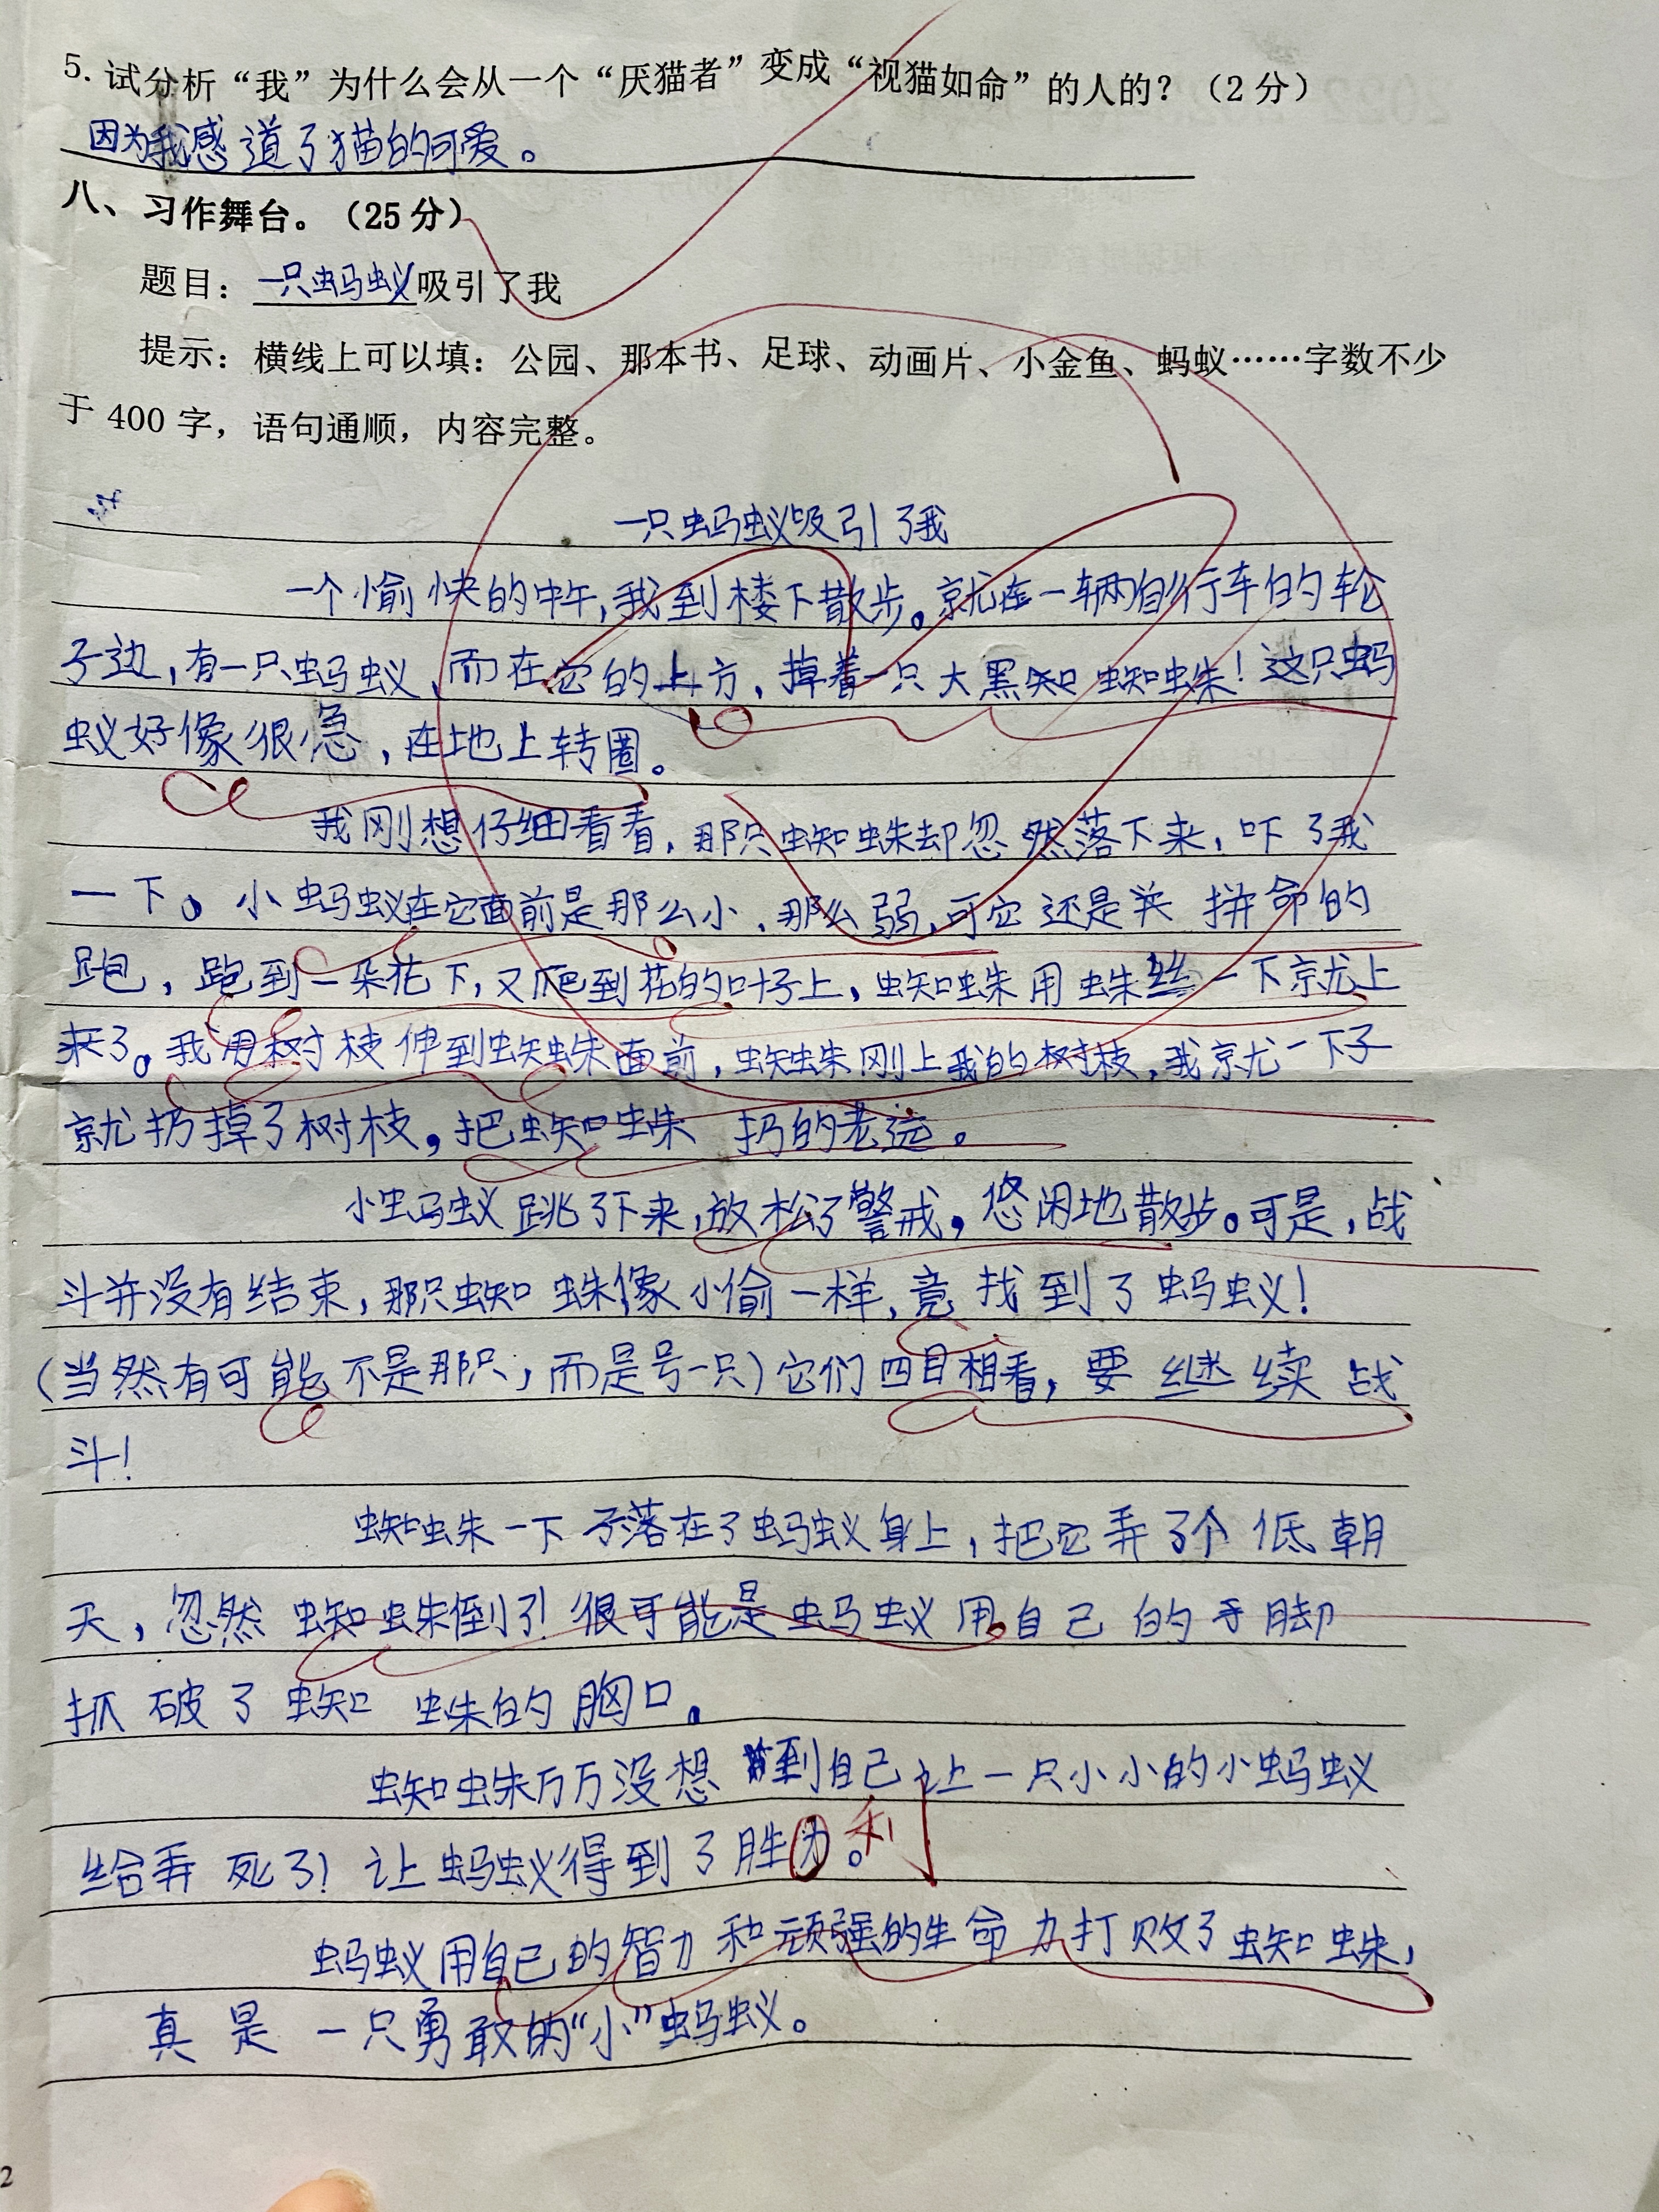 5. 试分析“我”为什么会从一个“厌猫者”变成“视猫如命”的人的？（2分）
因为我感道了猫的可爱。
八、习作舞台。（25分）
题目：一只蚂蚁吸引了我
提示：横线上可以填：公园、那本书、足球、动画片、小金鱼、蚂蚁……字数不少
于 400 字，语句通顺，内容完整。
一只蚂蚁吸引了我
一个愉快的中午，我到楼下散步。就在一辆自行车的轮
子边，有一只蚂蚁，而在它的上方，掉着一只大黑知蜘蛛！这只蚂
蚁好像很急，在地上转圈。
我刚想仔细看看，那只蜘蛛却忽然落下来，吓了我
一下。小蚂蚁在它面前是那么小，那么弱，可它还是拼命的
跑，跑到一朵花下，又爬到花的叶子上，蜘蛛用蛛丝一下就上
来了。我用树枝伸到蜘蛛面前，蜘蛛刚上我的树枝，我就一下子
就扔掉了树枝，把蜘蛛扔的老远。
小蚂蚁跳了下来，放松了警戒，悠闲地散步。可是，战
斗并没有结束，那只蜘蛛像小偷一样，竟找到了蚂蚁！
（当然有可能不是那只，而是号一只）它们四目相看，要继续战
斗！
蜘蛛一下子落在了蚂蚁身上，把它弄了个低朝
天，忽然蜘蛛倒了！很可能是蚂蚁用自己的手脚
抓破了蜘蛛的胸口。
蜘蛛万万没想到自己让一只小小的小蚂蚁
给弄死了！让蚂蚁得到了胜力。利
蚂蚁用自己的智力和顽强的生命力打败了蜘蛛，
真是一只勇敢的“小”蚂蚁。
2